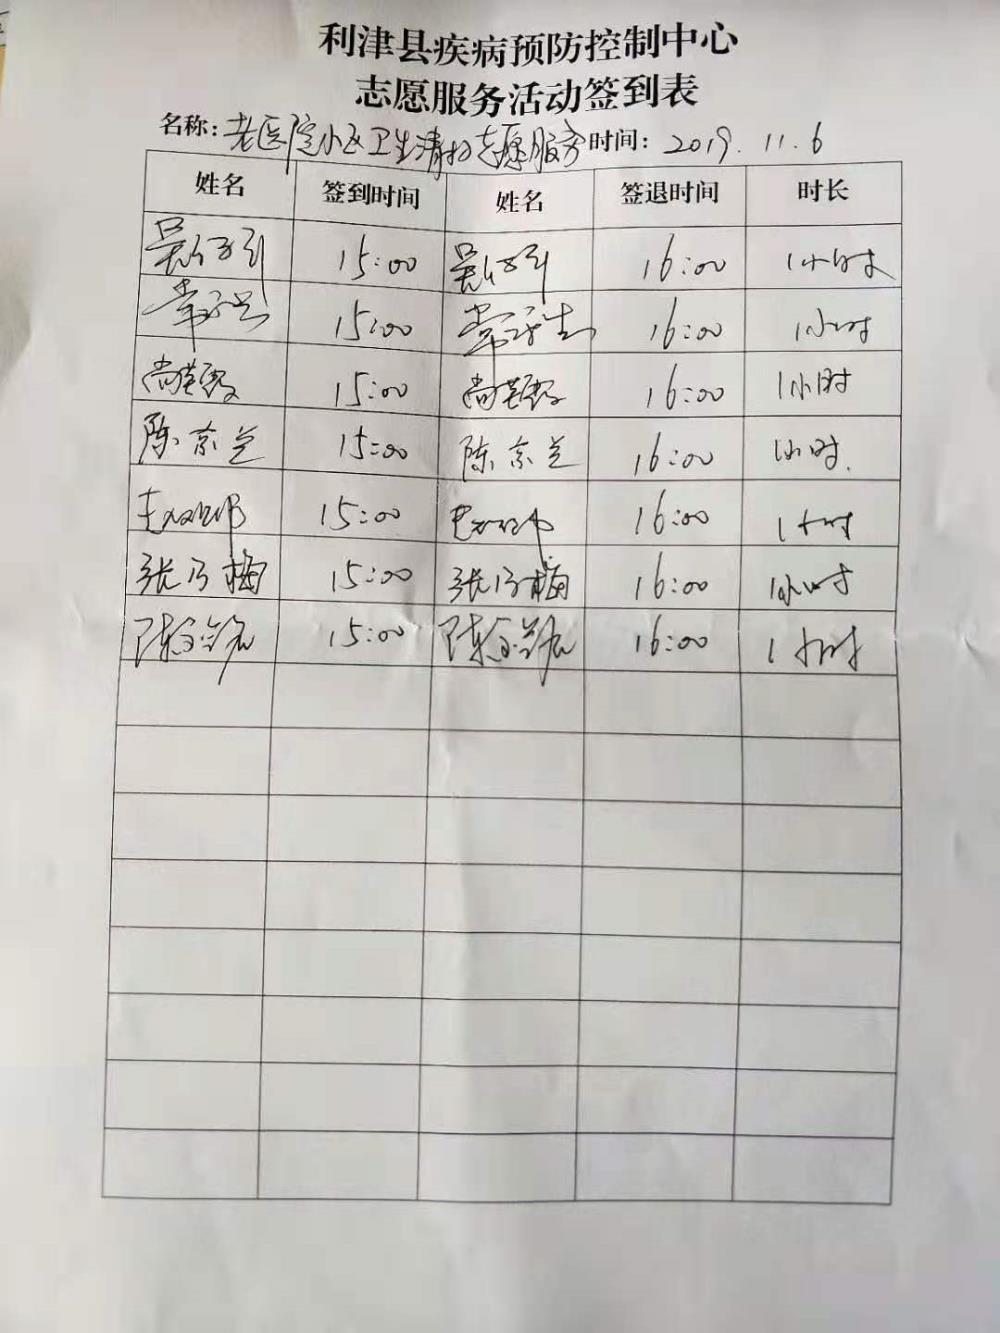 利津县疾病预防控制中心
志愿服务活动签到表
名称：老医院小区卫生清扫志愿服务 时间：2019.11.6
姓名 签到时间 姓名 签退时间 时长
15:00 16:00 1小时
15:00 16:00 1小时
15:00 16:00 1小时
陈京兰 15:00 陈京兰 16:00 1小时.
15:00 16:00 1小时
张乃梅 15:00 张乃梅 16:00 1小时
15:00 16:00 1小时